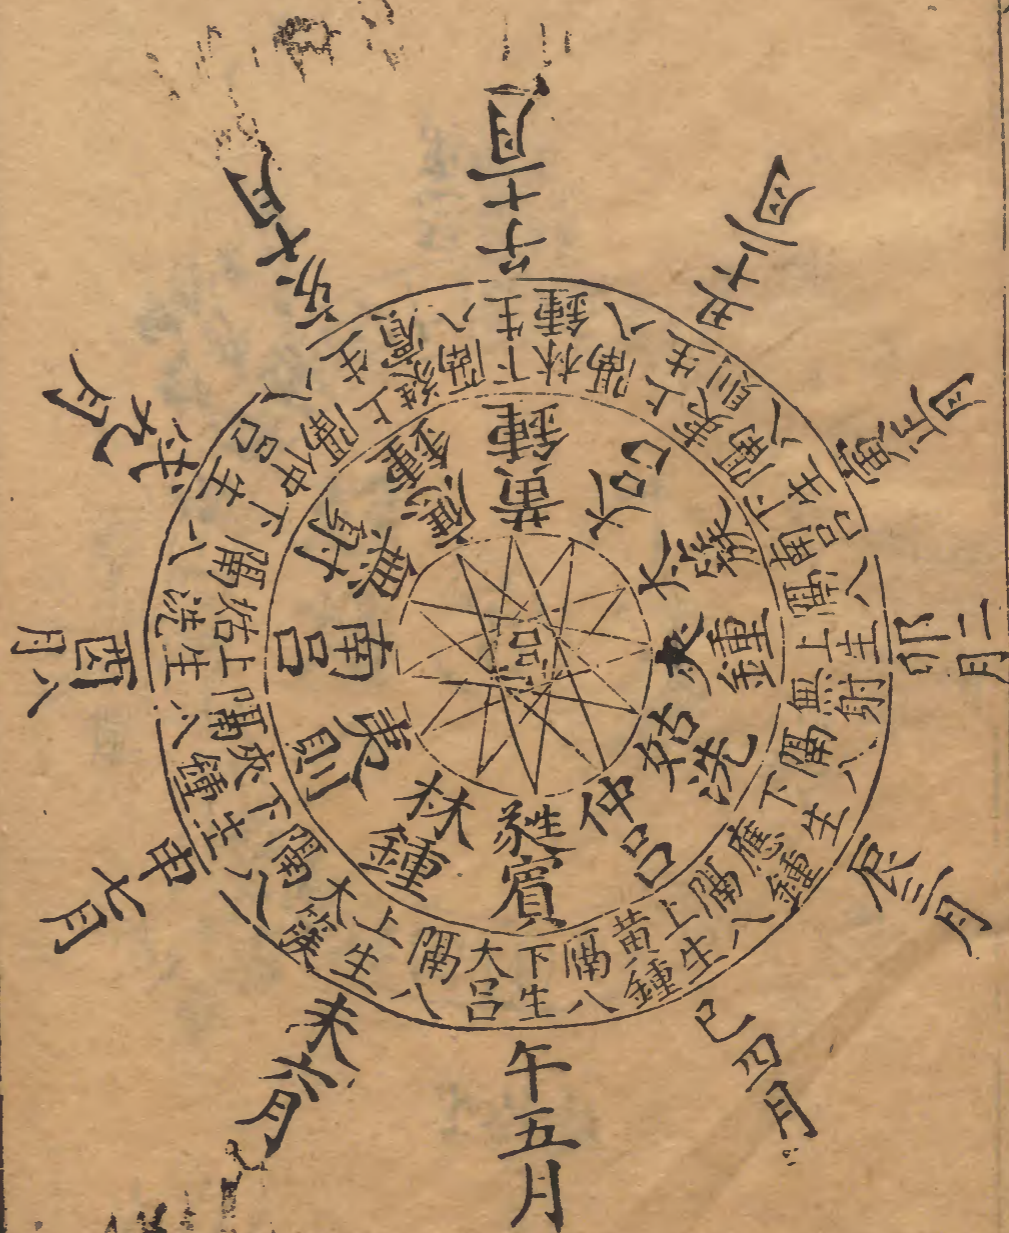 子十一月
丑十二月
寅正月
卯二月
辰三月
巳四月
午五月
未六月
申七月
酉八月
戌九月
亥十月
隔八下生林鍾
隔八上生夷則
隔八下生南呂
隔八上生無射
隔八下生應鍾
隔八上生黄鍾
隔八下生大呂
隔八上生大簇
隔八下生夾鍾
隔八上生姑洗
隔八下生仲呂
隔八上生蕤賓
黄鍾
大呂
大簇
夾鍾
姑洗
仲呂
蕤賓
林鍾
夷則
南呂
無射
應鍾